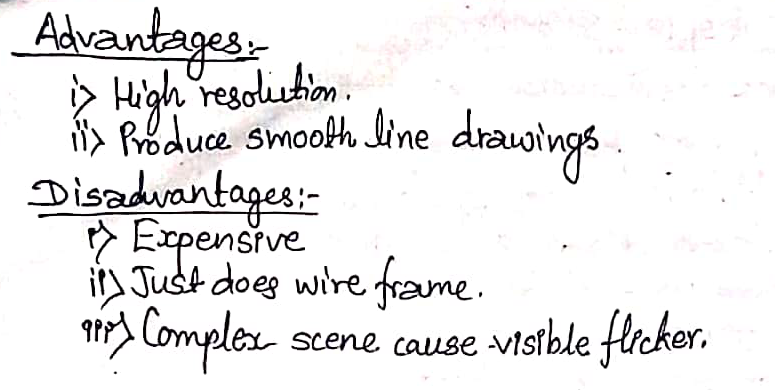 Advantages:-
i> High resolution.
ii> Produce smooth line drawings.
Disadvantages:-
i> Expensive
ii> Just does wire frame.
iii> Complex scene cause visible flicker.